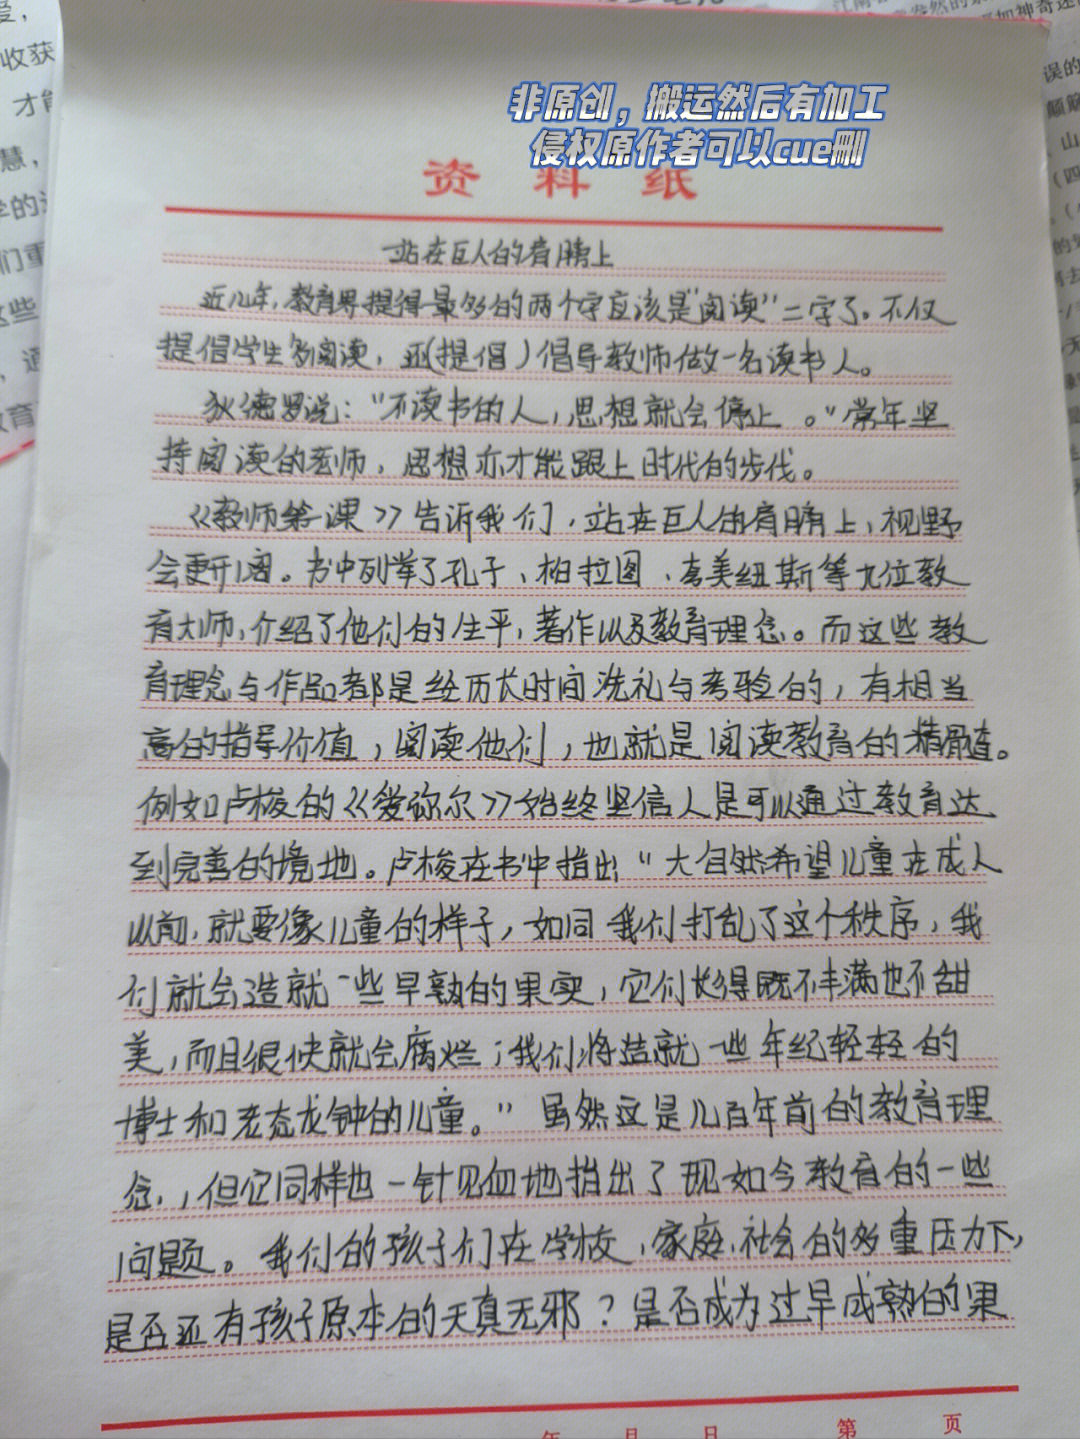 非原创，搬运然后有加工
侵权原作者可以cue删
资料纸
站在巨人的肩膀上
近几年，教育界提得最多的两个字应该是“阅读”二字了。不仅
提倡学生多阅读，还(提倡）倡导教师做一名读书人。
狄德罗说：“不读书的人，思想就会停止。”常年坚
持阅读的老师，思想亦才能跟上时代的步伐。
《教师第一课》告诉我们，站在巨人的肩膀上，视野
会更开阔。书中列举了孔子、柏拉图、夸美纽斯等九位教
育大师，介绍了他们的生平，著作以及教育理念。而这些教
育理念与作品都是经历长时间洗礼与考验的，有相当
高的指导价值，阅读他们，也就是阅读教育的精髓。
例如卢梭的《爱弥尔》始终坚信人是可以通过教育达
到完善的境地。卢梭在书中指出“大自然希望儿童在成人
以前，就要像儿童的样子，如同我们打乱了这个秩序，我
们就会造就一些早熟的果实，它们长得既不丰满也不甜
美，而且很快就会腐烂；我们将造就一些年纪轻轻的
博士和老态龙钟的儿童。”虽然这是几百年前的教育理
念，，但它同样也一针见血地指出了现如今教育的一些
问题。我们的孩子们在学校，家庭，社会的多重压力下，
是否还有孩子原本的天真无邪？是否成为过早成熟的果
年 月 日 第 页